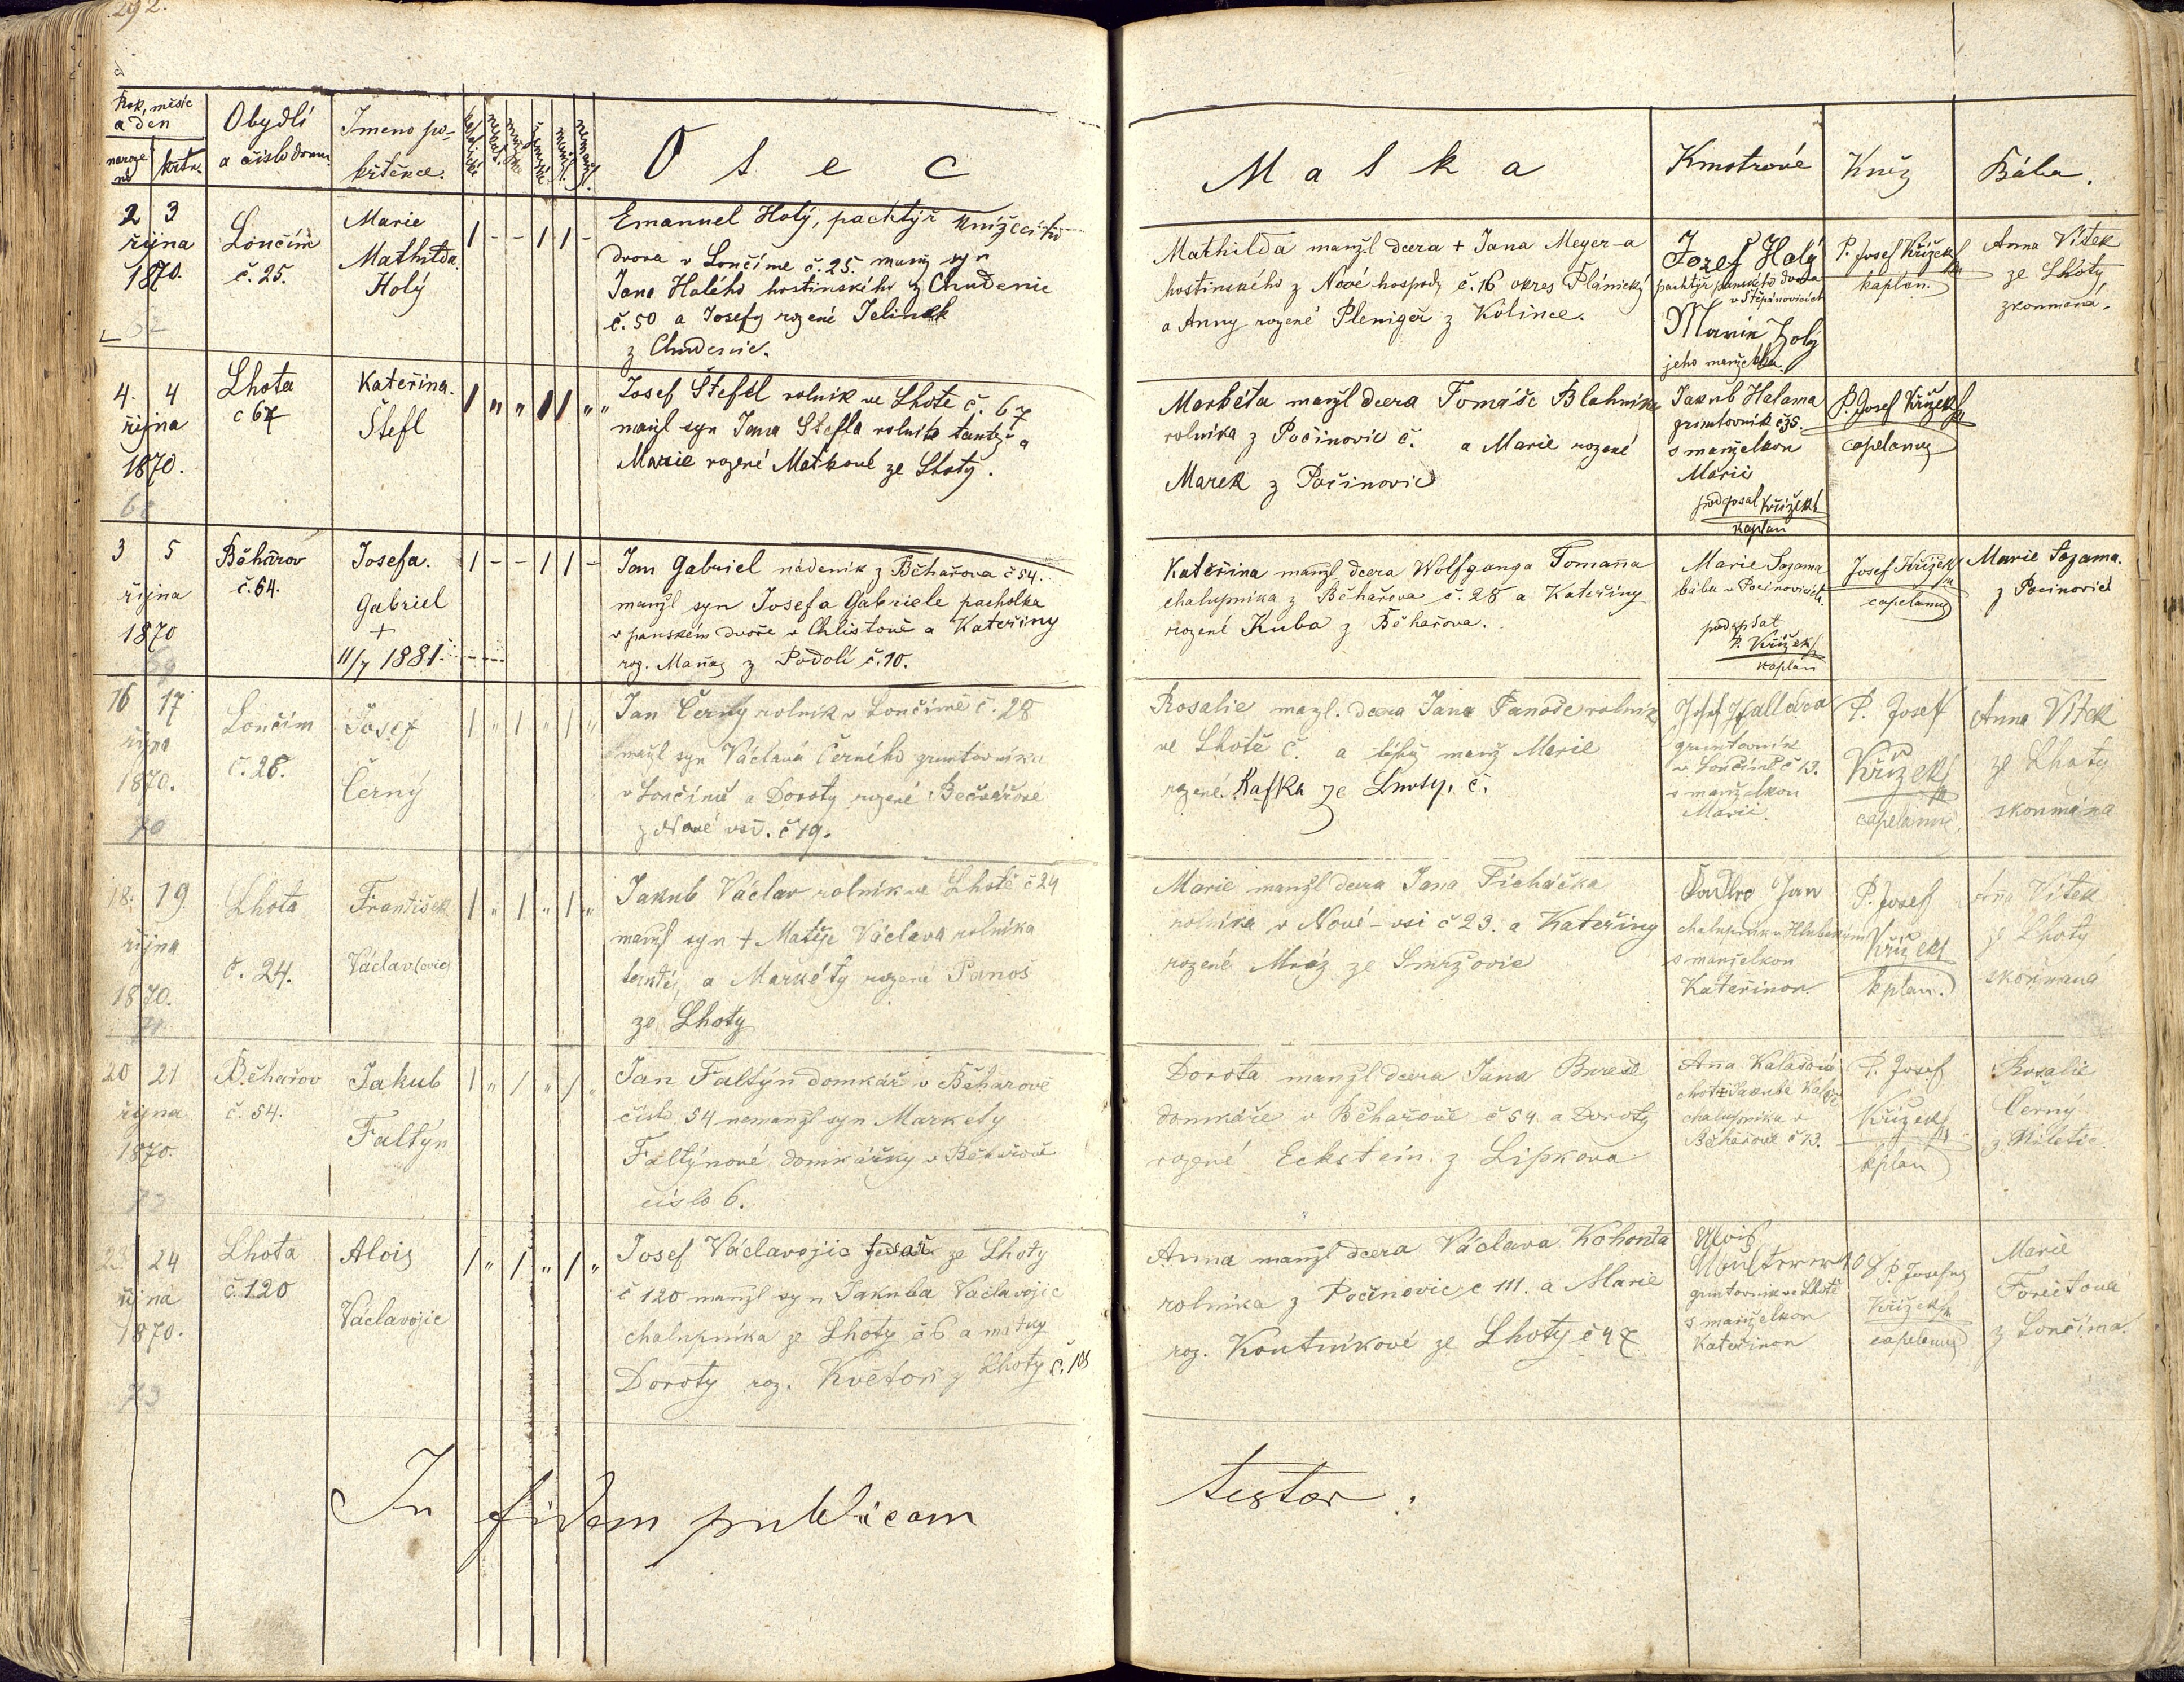 292.
Rok, měsíc
a den
naroze
ní
křtu
Obydlí
a číslo domu
Jmeno po-
křtěnce.
O t e c
M a t k a
Kmotrové
Kněz
Bába.
2 3
října
1870.
Lončim
č. 25.
Marie
Mathilda
Holý
1 - - 1 1 -
Emanuel Holý, pachtýř knížecího
dvora v Lončíme č. 25. manž syn
Jana Holého hostinského z Chudenic
č. 50 a Josefy rozené Jelinek
z Chudenic.
Mathilda manžl dcera + Jana Meyer-a
hostinského z Nové hospody č. 16 okres Plánický
a Anny rozené Pleniger z Kolince.
Jozef Holý
pachtýř panského dvora
v Štěpánovicích
Marie Holý
jeho manželka.
P. Josef Křížek
kaplan.
Anna Vítek
ze Lhoty
zkoumaná.
4. 4
října
1870.
68
Lhota
č 67
Kateřina.
Štefl
1 " " 1 1 "
Josef Štefl rolník ve Lhote č. 67
manžl syn Jana Štefla rolníka tamtéž a
Marie rozené Matkové ze Lhoty.
Markéta manžl dcera Tomáše Blahníka
rolníka z Počinovic č. a Marie rozené
Marek z Počinovic
Jakub Halama
gruntovník č 35.
s manželkou
Marií
podepsal Křížek
kaplan
P. Josef Křížek
capelanus
3 5
října
1870
69
Běhařov
č. 64.
Josefa.
Gabriel
+
11/7 1881.
1 - - 1 1 -
Jan Gabriel nádeník z Běhařova č 54.
manžl syn Josefa Gabriele pacholka
v panském dvoře v Chlistově a Kateřiny
roz. Maňas z Podolí č. 10.
Kateřina manžl dcera Wolfganga Tomana
chalupníka z Běhařova č. 28 a Kateřiny
rozené Kuba z Běhařova.
Marie Sazama
bába v Počinovicích.
podepsal
P. Křížek
kaplan
Josef Křížek
capelanus
Marie Sazama.
z Pocinovic
16 17
října
1870.
70
Lončim
č. 28.
Josef
Černý
1 " 1 " 1 "
Jan Černý rolník v Lončimě č. 28
manžl syn Václava Černého gruntovníka
v Lončimě a Doroty rozené Bečvářove
z Nové vsi. č 19.
Rosalie mazl. dcera Jana Panoše rolnik
ve Lhotě č. a též manž Marie
rozené. Kafka ze Lhoty. č.
gruntovník
v Lončimě č 13.
s manželkou
Marii.
P. Josef
Křížek
capelanus
Anna Vítek
ze Lhoty
skoumána
18. 19
října
1870.
71
Lhota
č. 24.
František
Václav(ovic)
1 " 1 " 1 "
Jakub Václav rolník ve Lhotě č 24
manžl syn + Matěje Václava rolníka
tamtéž a Markéty rozené Panoš
ze Lhoty
Marie manžl dcera Jana Ticháčka
rolníka v Nové-vsi č 23. a Kateřiny
rozené Mráz ze Smržovic
s manželkou
Kateřinou.
P. Josef
Křížek
kplan.
Vítek
ze Lhoty
skoumaná
20 21
října
1870.
72
Běhařov
č. 54.
Jakub
Faltýn
1 " 1 " 1 "
Jan Faltýn domkář v Běhařove
číslo 54 nemanžl syn Markety
Faltýnové domkářky v Běhařově
číslo 6.
Dorota manžl dcera Jana Bureš
domkáře v Běhařově č 54. a Doroty
rozené Eckstein z Lipkova
chalupníka v
Běhařově č 13.
P. Josef
Křížek
kplan
Rosalie
Černý
z Miletic.
23 24
října
1870.
73
Lhota
č. 120
Alois
Václavojic
1 " 1 " 1 "
Josef Václavojic tesař ze Lhoty
č 120 manžl syn Jakuba Václavojic
chalupníka ze Lhoty č 6 a matky
Doroty roz. Květoň z Lhoty č. 101
Anna manžl dcera Václava Kohouta
rolníka z Počinovic č 111. a Marie
roz. Koutníkové ze Lhoty č 47
Alois
gruntovník ve Lhotě
s manželkou
Kateřinou
P. Josef
Křížek
capelanus
Marie
Foreitová
z Lončima.
In fidem publicam
testor: